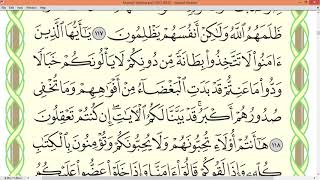 ظَلَمَهُمُ ٱللَّهُ وَلَٰكِنْ أَنفُسَهُمْ يَظْلِمُونَ ١١٧ يَٰٓأَيُّهَا ٱلَّذِينَ
ءَامَنُوا۟ لَا تَتَّخِذُوا۟ بِطَانَةً مِّن دُونِكُمْ لَا يَأْلُونَكُمْ خَبَالًا
وَدُّوا۟ مَا عَنِتُّمْ قَدْ بَدَتِ ٱلْبَغْضَآءُ مِنْ أَفْوَٰهِهِمْ وَمَا تُخْفِى
صُدُورُهُمْ أَكْبَرُ قَدْ بَيَّنَّا لَكُمُ ٱلْـَٔايَٰتِ إِن كُنتُمْ تَعْقِلُونَ ١١٨
هَٰٓأَنتُمْ أُو۟لَآءِ تُحِبُّونَهُمْ وَلَا يُحِبُّونَكُمْ وَتُؤْمِنُونَ بِٱلْكِتَٰبِ
كُلِّهِۦ وَإِذَا لَقُوكُمْ قَالُوٓا۟ ءَامَنَّا وَإِذَا خَلَوْا۟ عَضُّوا۟ عَلَيْكُمُ